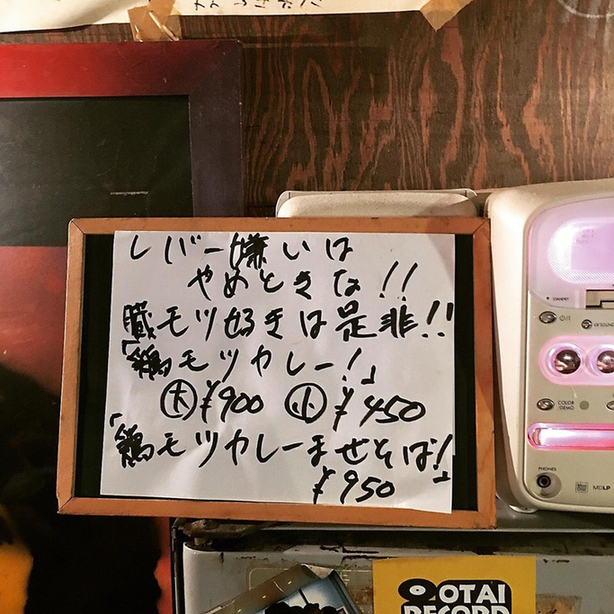 レバー嫌いは
やめときな!!
臓モツ好きは是非!!
「鶏モツカレー!」
大 ¥900 小 ¥450
「鶏モツカレーまぜそば!」
¥950
PHONES
MDLP
COLOR
/DEMO
OTAI
RECORD